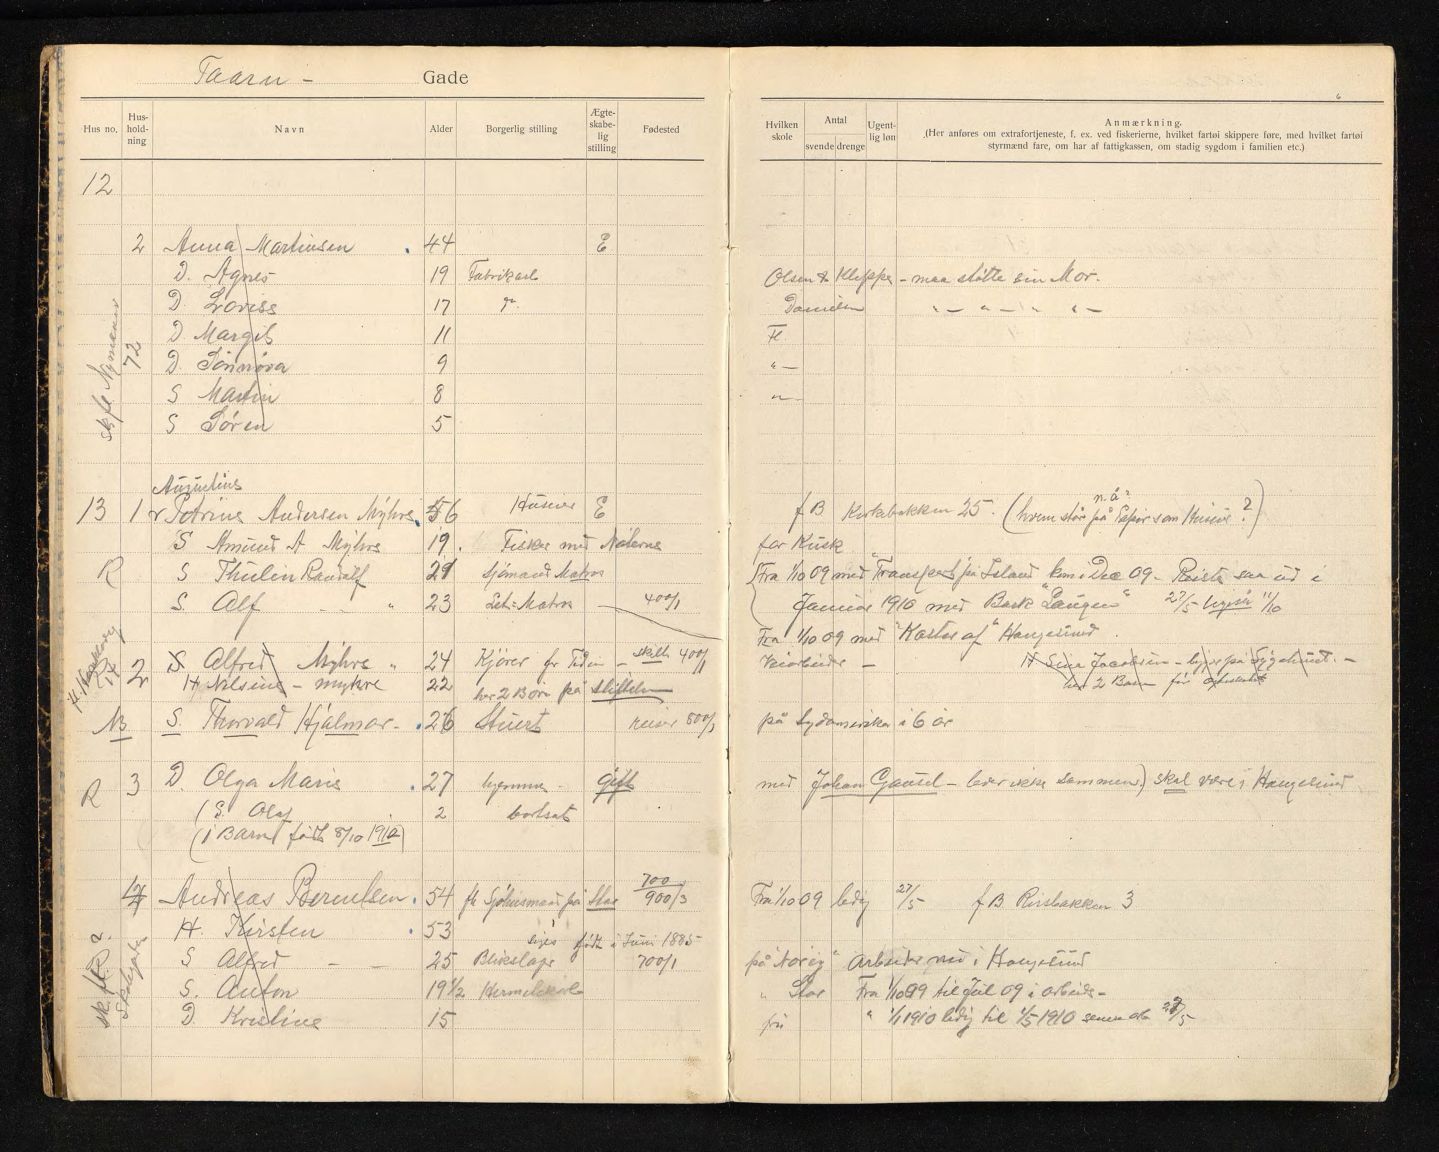 Taarn - Gade
Hus no. Hus-hold-ning Navn Alder Borgerlig stilling Ægte-skabe-lig stilling Fødested
Hvilken skole Antal svende drenge Ugent-lig løn Anmærkning.
(Her anføres om extrafortjeneste, f. ex. ved fiskerierne, hvilket fartøi skippere føre, med hvilket fartøi
styrmænd fare, om har af fattigkassen, om stadig sygdom i familien etc.)
6
12
2 Anna Martinsen 44 E
D. Agnes 19 Fabrikarb Olsen & Kleppe - maa støtte sin Mor.
D. Lovise 17 Danielsen " - " - " " -
D Margit 11 Fl.
D. Sønnøva 9 " -
S Martin 8 " -
S Søren 5
skfl. Nymansv 72
Augustins
13 1 Petrine Andersen Myhre 56 Huseier E f B Kirkebakken 25. (hvem står på Papir som Huseier nå?)
S Amund A Myhre 19. Fisker med Naterne før Kusk
R S Thulin Randulf 21 Sjømand Matros Fra 1/10 09 med "Transport" på Island kom i Dec 09 - Reiste saa ud i
S. Alf - - " 23 Let-Matros 400/1 Januar 1910 med Bark "Laugen" 27/5 11/10
Fra 1/10 09 med "Kastor af" Haugesund
2 S Alfred Myhre " 24 Kjører for Tiden - skilt 400/1 Veiarbeider - H Sina Jacobsen - ligger på Sygehuset. -
H Nilsine - Myhre 22 har 2 Born på har 2 Barn før
N S. Thorvald Hjalmar - 26 Stuert reiser 800/1 på Sydamerika i 6 år
R 3 D Olga Marie 27 hjemme - Gift med Johan Gausel - lever ikke sammen) skal være i Haugesund
(S. Olaf 2 bortsat
(1 Barn født 8/10 1910)
4 Andreas Berentsen 54 fh Sjøhusmand på Star 700 900/3 Fra 1/10 09 ledig 27/5 f B Risbakken 3
H. Kirsten 53
siges født i Juni 1885
S Alfred - - 25 Blikslager 700/1 på "Norig" Arbeider nu i Haugesund
S. Anton 19 1/2 Hermetikarb " Star Fra 1/10 09 til Jul 09 i arbeide -
D. Kristine 15 fri " 1/1 1910 ledig til 1/5 1910 27/5